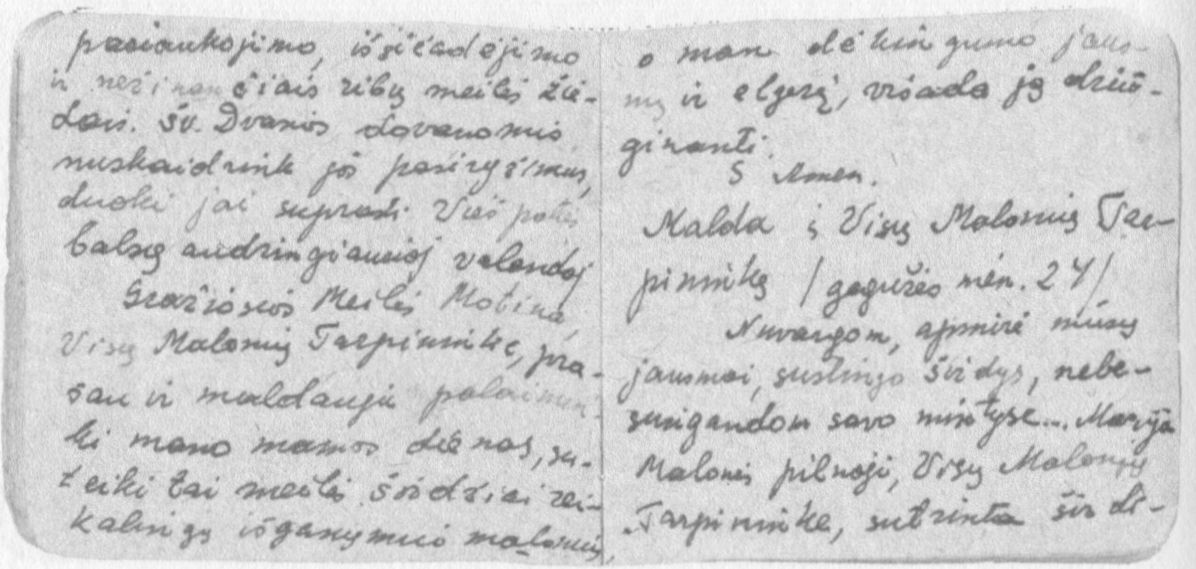 pasiaukojimo, išsižadėjimo
ir nežinančiais ribų meilės žie-
dais. Šv. Dvasios dovanomis
nuskaidrink jos pasiryžimus,
duoki jai suprasti Viešpaties
balsą audringiausioj valandoj
Gražiosios Meilės Motina,
Visų Malonių Tarpininke, pra-
šau ir maldauju palaimin-
ki mano mamos dienas, su-
teiki tai meilės širdžiai rei-
kalingų išganymui malonių,
o man dėkingumo jaus-
mą ir elgesį, visada ją džiu-
ginantį.
Amen.
Malda į Visų Malonių Tar-
pininkę / gegužės mėn. 24/
Nuvargom, apmirė mūsų
jausmai, sustingo širdys, nebe-
susigaudom savo mintyse... Marija
Malonės pilnoji, Visų Malonių
Tarpininke, sutrinta širdi-